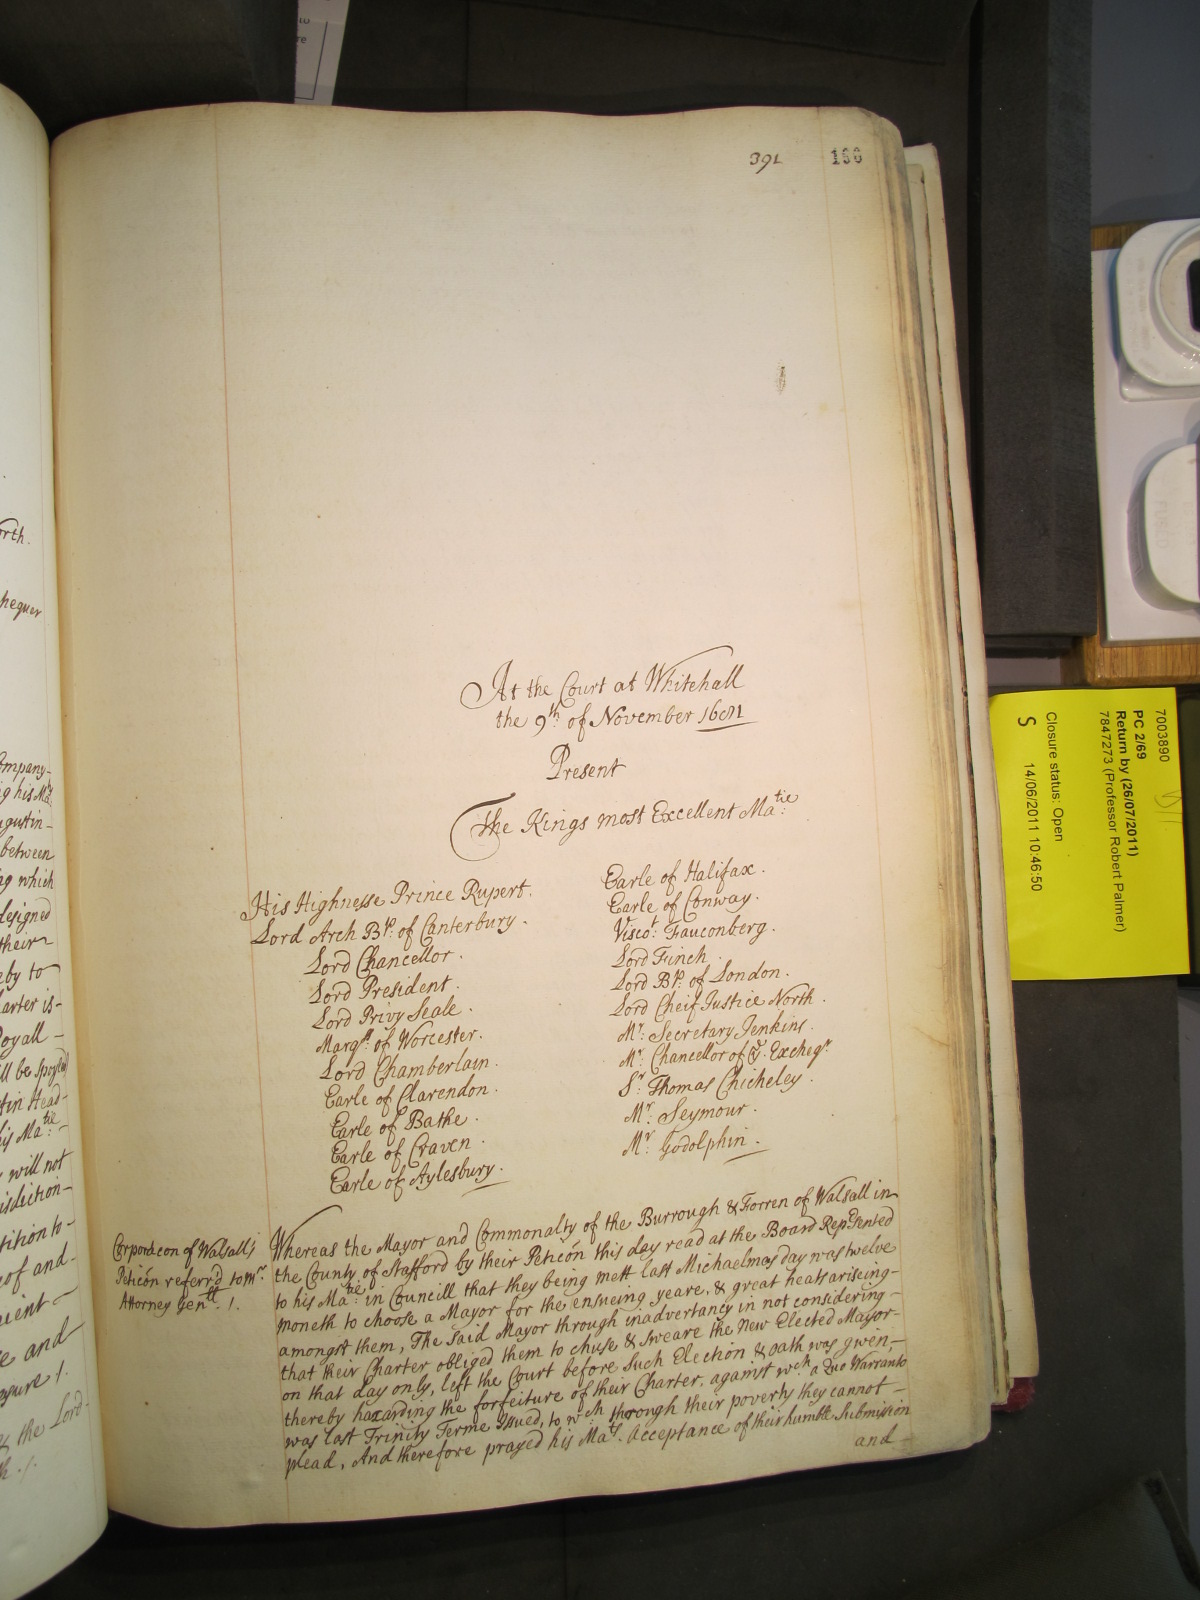 391 166
At the Court at Whitehall
the 9th of November 1681
Present
The Kings most Excellent Matie:
His Highnesse Prince Rupert.
Lord Arch Bp: of Canterbury.
Lord Chancellor.
Lord President.
Lord Privy Seale.
Marqss of Worcester.
Lord Chamberlain.
Earle of Clarendon.
Earle of Bathe.
Earle of Craven.
Earle of Aylesbury.
Earle of Halifax.
Earle of Conway.
Viscot: Fauconberg.
Lord Finch.
Lord Bp. of London.
Lord Cheif Justice North.
Mr. Secretary Jenkins.
Mr. Chancellor of ye. Excheqr.
Sr. Thomas Chicheley.
Mr. Seymour.
Mr. Godolphin.
Corporacon of Walsalls
Peticon referrd to Mr.
Attorney Genll. /.
Whereas the Mayor and Commonalty of the Burrough & Forren of Walsall in
the County of Stafford by their Peticón this day read at the Board Repsented
to his Matie: in Councill that they being mett last Michaelmas day was twelve
moneth to choose a Mayor for the ensueing yeare, & great heats ariseing-
amongst them, The said Mayor through inadvertancy in not considering-
that their Charter obliged them to chuse & sweare the New Elected Mayor-
on that day only, left the Court before such Election & oath was given,-
thereby hazarding the forfeiture of their Charter, against wch. a Quo Warranto
was last Trinity Terme Issued, to wch through their poverty they cannot-
plead, And therefore prayed his Mats. Acceptance of their humble Submission
and-
orth.
hequer
ompany-
g his Mats
ugustin-
between
ng which
designed
their-
eby to
arter is-
Royall-
ll be Spoyled
tin Head-
his Matie:-
will not
isdiction-
tition to-
of and-
uient-
e and-
easure /.
the Lord-
7003890
PC 2/69
Return by (26/07/2011)
7847273 (Professor Robert Palmer)
Closure status: Open
S 14/06/2011 10:46:50